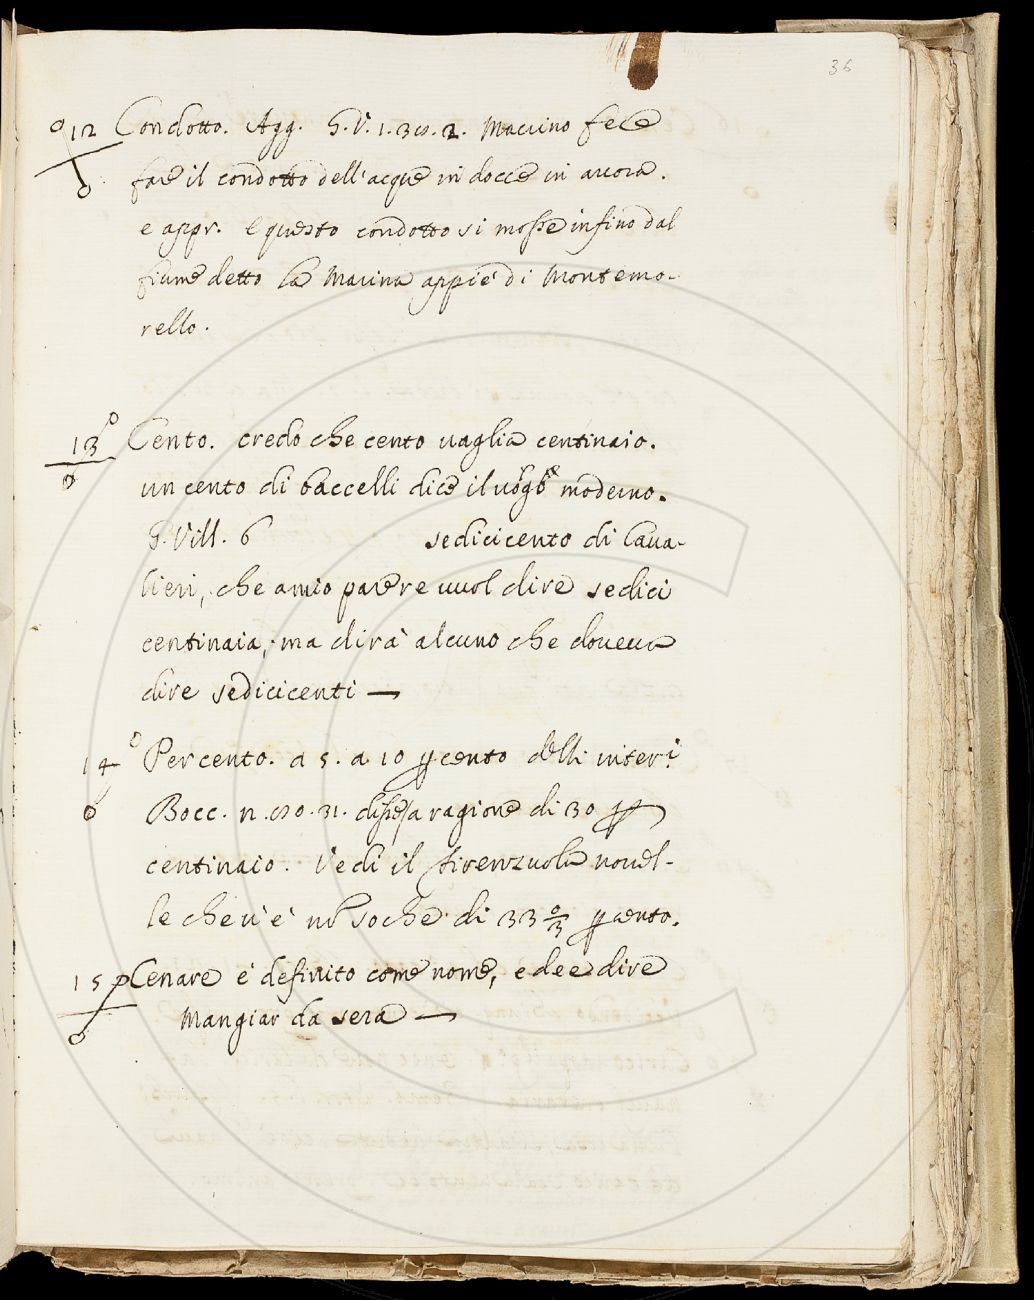 36
12 Condotto. Agg. G.V. 1. 38. 2. Macrino fece
fare il condotto dell'acque in docce in arcora.
e appr. E questo condotto si mosse infino dal
fiume detto la Marina appiè di Montemo-
rello.
13 Cento. credo che cento vaglia centinaio.
un cento di baccelli dice il uso moderno.
G. Vill. 6 sedicicento di Caua-
lieri, che a mio parere uuol dire sedici
centinaia, ma dirà alcuno che doueua
dire sedicicenti —
14 Per cento. a 5. a 10 p cento delli interi
Bocc. n. 80. 31. a ragione di 30 p
centinaio. Vedi il firenzuola nouel-
le che u'è nõ so che di 33 p cento.
15 Cenare è definito come nome, e dee dire
Mangiar da sera —